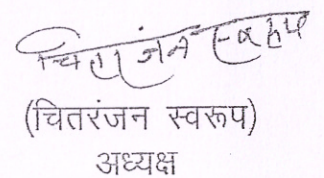 चितरंजन स्वरूप
(चितरंजन स्वरूप)
अध्यक्ष